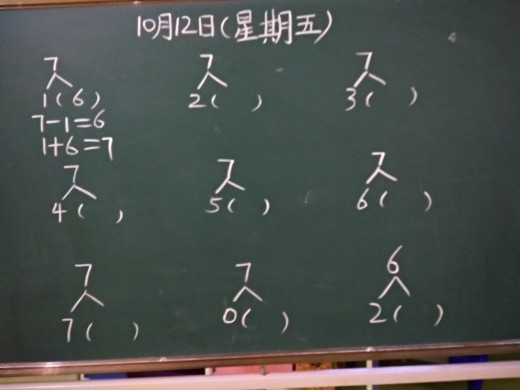 10月12日(星期五)
7 7 7
1(6) 2( ) 3( )
7-1=6
1+6=7
7 7 7
4( ) 5( ) 6( )
7 7 6
7( ) 0( ) 2( )